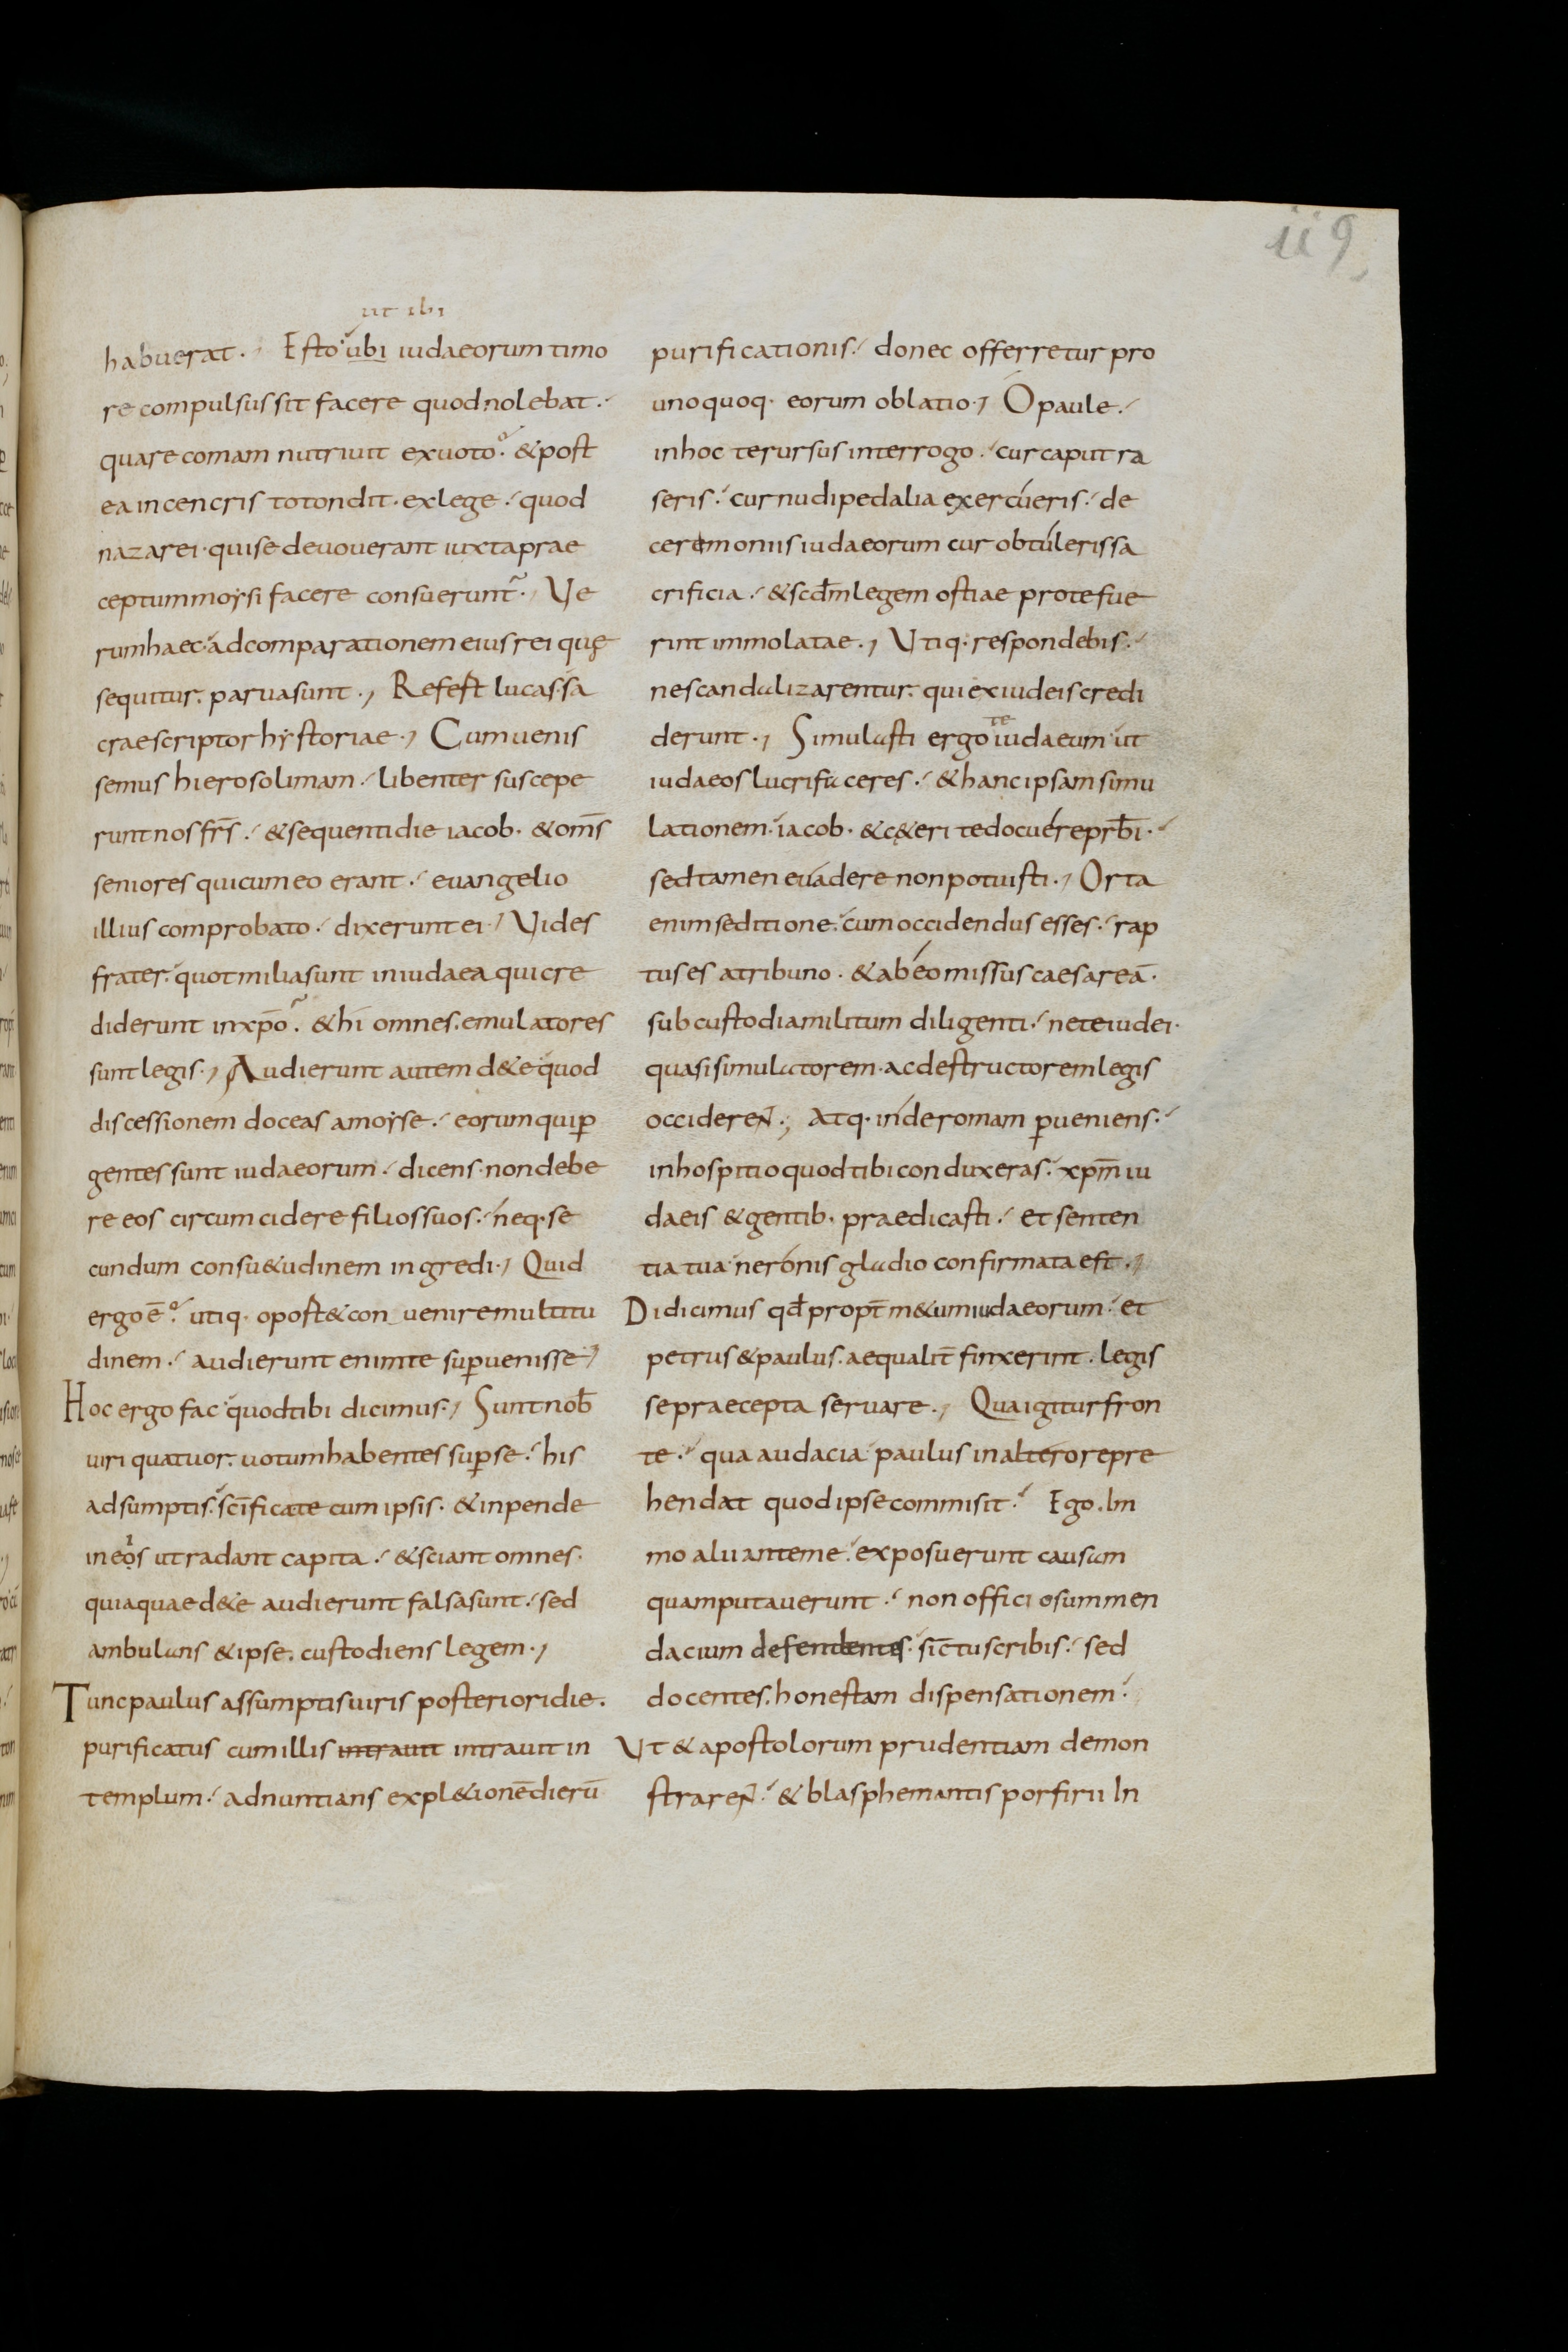 119
ut ibi
habuerat. Esto ubi iudaeorum timo
re compulsus sit facere quod nolebat.
quare comam nutriuit ex uoto. & post
ea in cencris totondit. ex lege. quod
nazarei. qui se deuouerant iuxta prae
ceptum moysi facere consuerunt. Ve
rum haec. ad comparationem eius rei quę
sequitur. parua sunt., Refert lucas. sa
crae scriptor hystoriae., Cum uenis
semus hierosolimam. libenter suscepe
runt nos fr̄s. & sequenti die iacob. & om̄s
seniores qui cum eo erant. euangelio
illius comprobato. dixerunt ei., Vides
frater. quot milia sunt in iudaea qui cre
diderunt in xp̄o. & hi omnes. emulatores
sunt legis., Audierunt autem de te quod
discessionem doceas a moyse. eorum qui ꝑ
gentes sunt iudaeorum. dicens. non debe
re eos circumcidere filios suos. neq. se
cundum consu&udinem ingredi., Quid
ergo ē. utiq. opost& conuenire multitu
dinem. audierunt enim te suꝑuenisse.,
Hoc ergo fac quod tibi dicimus., Sunt nob̄
uiri quatuor. uotum habentes suꝑ se. his
adsumptis. sc̄ifica te cum ipsis. & inpende
in eos ut radant capita. & sciant omnes.
quia quae de te audierunt falsa sunt. sed
ambulans & ipse. custodiens legem.,
Tunc paulus assumptis uiris posteriori die.
purificatus cum illis intrauit intrauit in
templum. adnuntians expl&ionē dierū
purificationis. donec offerretur pro
unoquoq. eorum oblatio., O paule.
in hoc te rursus interrogo. cur caput ra
seris. cur nudipedalia exercueris. de
ceremoniis iudaeorum cur obtuleris sa
crificia. & scd̄m legem ostiae pro te fue
rint immolatae., Vtiq. respondebis.
ne scandalizarentur. qui ex iudeis credi
derunt., Simulasti ergo te iudaeum ut
iudaeos lucrifaceres. & hanc ipsam simu
lationem. iacob. & c&eri te docuere prb̄i.
sed tamen euadere non potuisti., Orta
enim seditione. cum occidendus esses. rap
tus es a tribuno. & ab eo missus caesareā.
sub custodia militum diligenti. ne te iudei.
quasi simulatorem. ac destructorem legis
occiderent., Atq. inde romam ꝑueniens.
in hospitio quod tibi conduxeras. xp̄m iu
daeis & gentib. praedicasti. et senten
tia tua neronis gladio confirmata est.,
Didicimus qd̄ propt̄ m&um iudaeorum. et
petrus & paulus. aequalit̄ finxerint. legis
se praecepta seruare., Qua igitur fron
te. qua audacia paulus in altero repre
hendat quod ipse commisit. Ego. Im
mo alii ante me. exposuerunt causam
quam putauerunt. non officiosum men
dacium defendentes. sic̄ tu scribis. sed
docentes. honestam dispensationem.
Vt & apostolorum prudentiam demon
strarent. & blasphemantis porfirii In